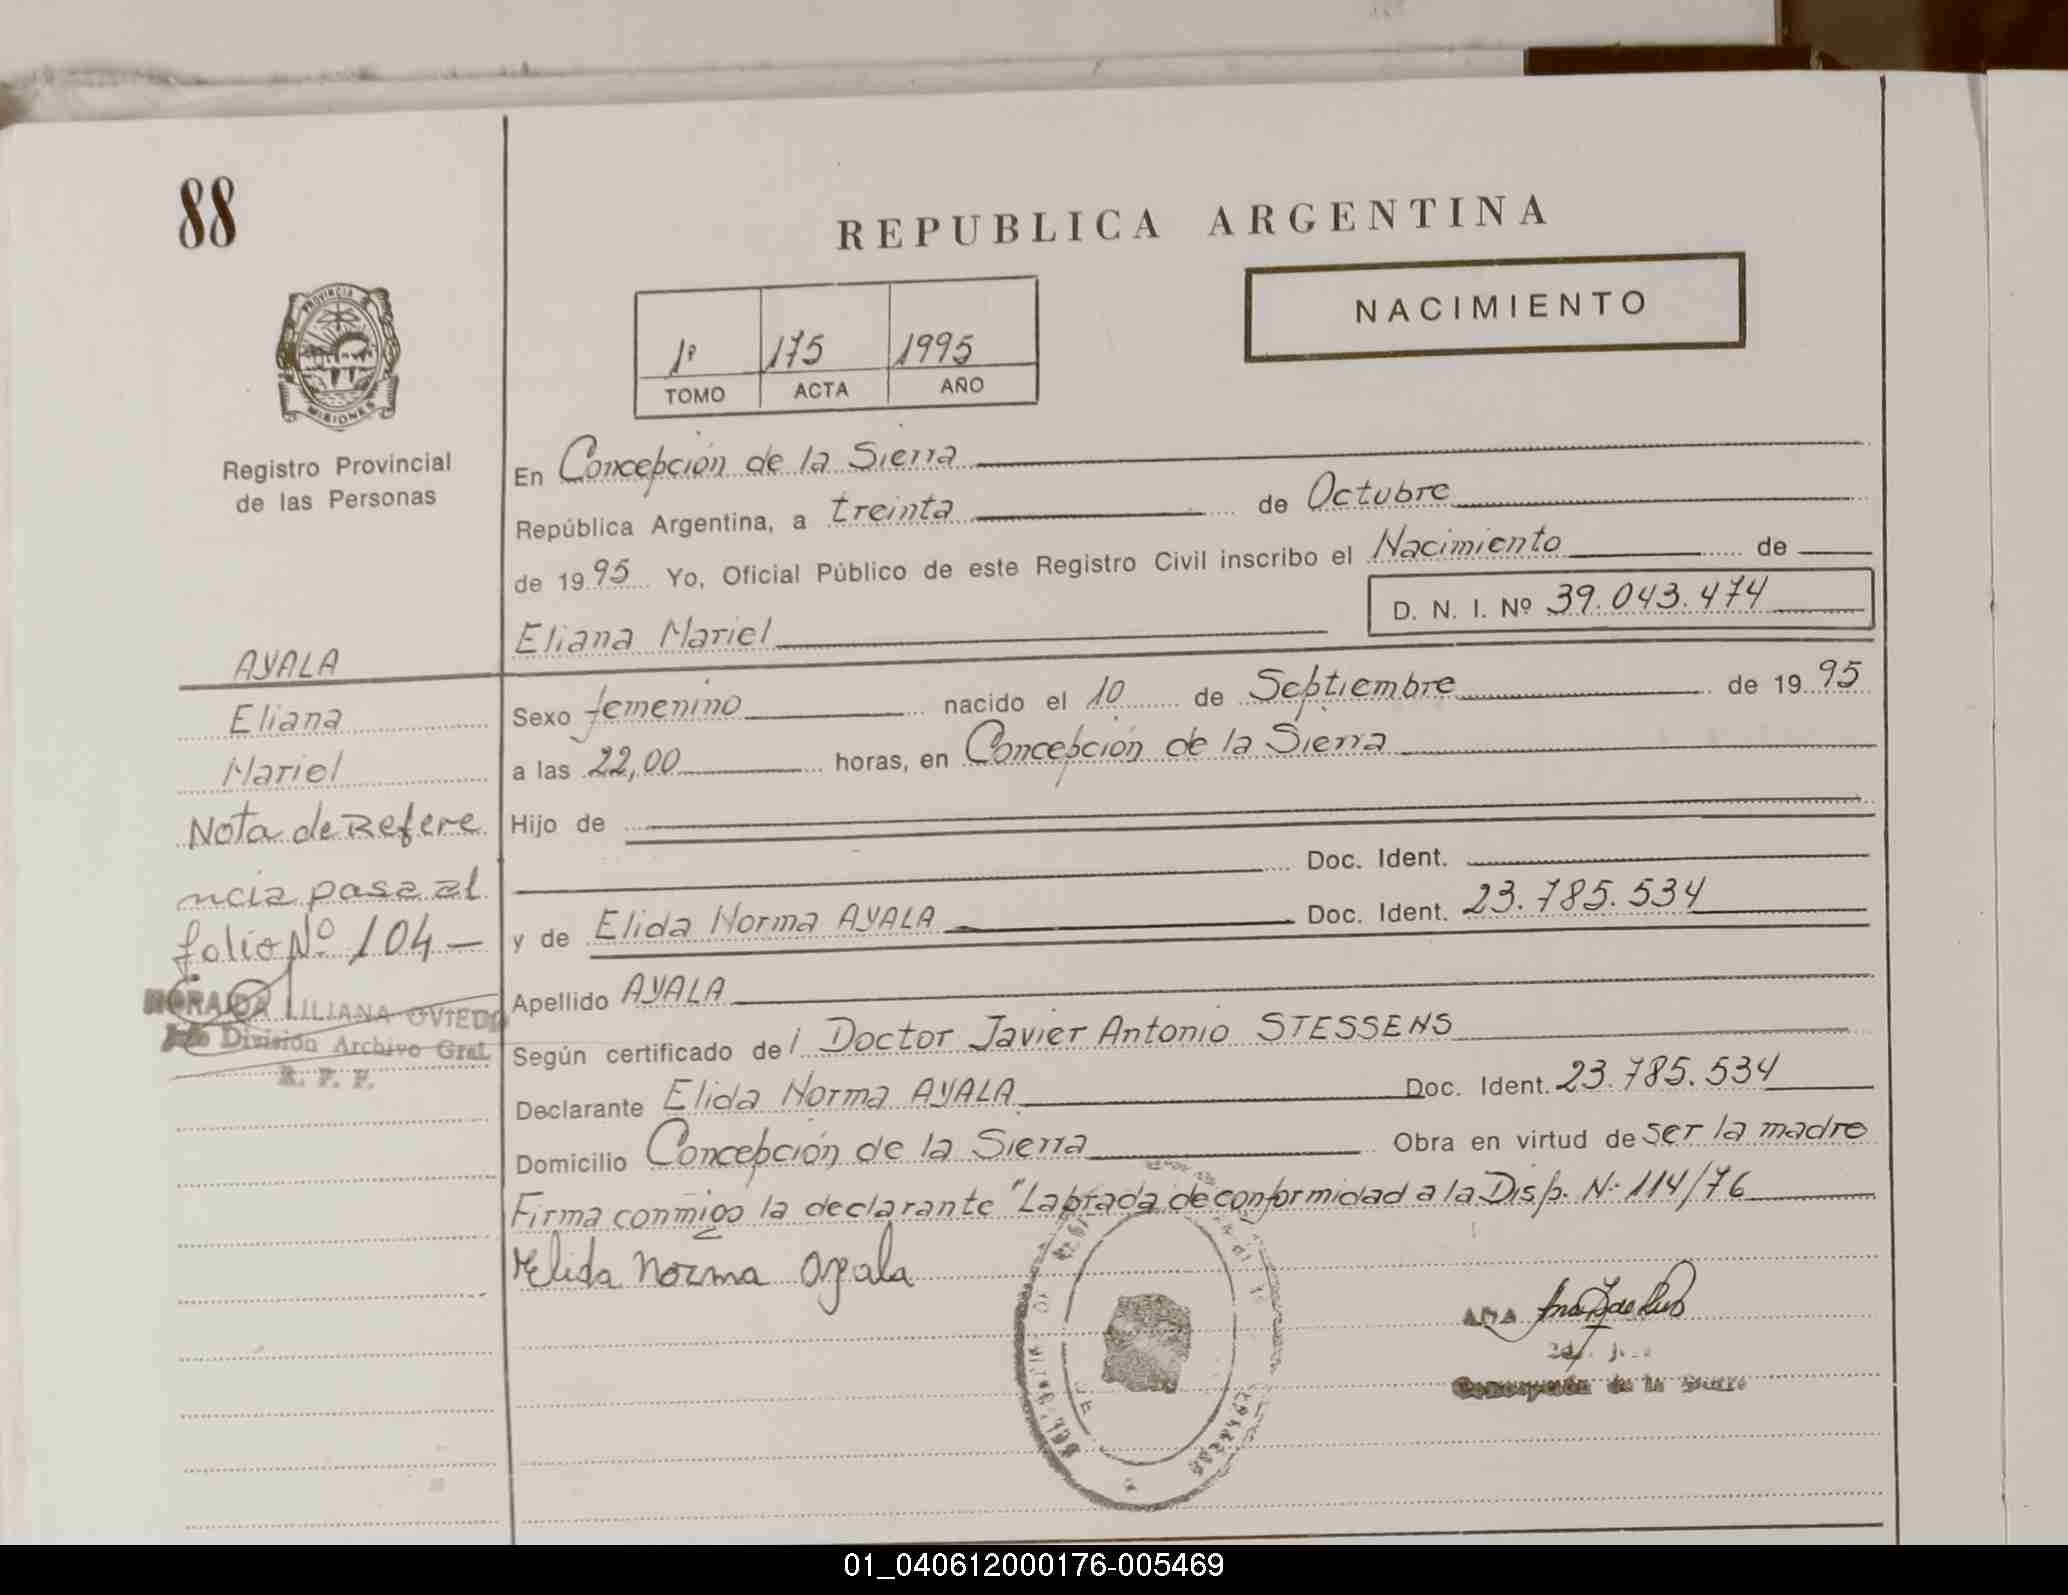 88
REPUBLICA ARGENTINA
NACIMIENTO
1º 175 1995
TOMO ACTA AÑO
PROVINCIA
MISIONES
Registro Provincial
de las Personas
En Concepción de la Sierra
República Argentina, a treinta de Octubre
de 1995 Yo, Oficial Público de este Registro Civil inscribo el Nacimiento de
D. N. I. Nº 39.043.474
Eliana Mariel
AYALA
Eliana
Mariel
Nota de Refere
ncia pasa al
folio Nº 104 —
LILIANA OVIEDO
División Archivo Gral.
R. P. P.
Sexo femenino nacido el 10 de Septiembre de 1995
a las 22,00 horas, en Concepción de la Sierra
Hijo de
Doc. Ident.
y de Elida Norma AYALA Doc. Ident. 23.785.534
Apellido AYALA
Según certificado del Doctor Javier Antonio STESSENS
Declarante Elida Norma AYALA Doc. Ident. 23.785.534
Domicilio Concepción de la Sierra Obra en virtud de ser la madre
Firma conmigo la declarante "Labrada de conformidad a la Disp. N: 114/76
Elida Norma Ayala
ANA
Concepción de la Sierra
01_040612000176-005469